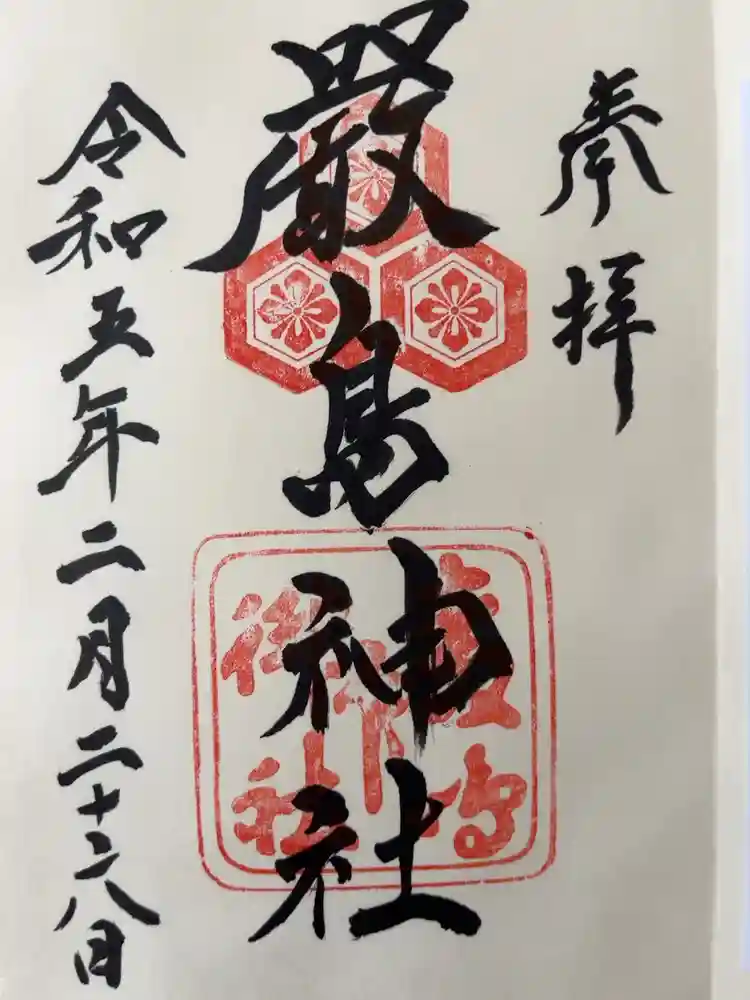 奉拝
厳島神社
令和五年二月二十六日